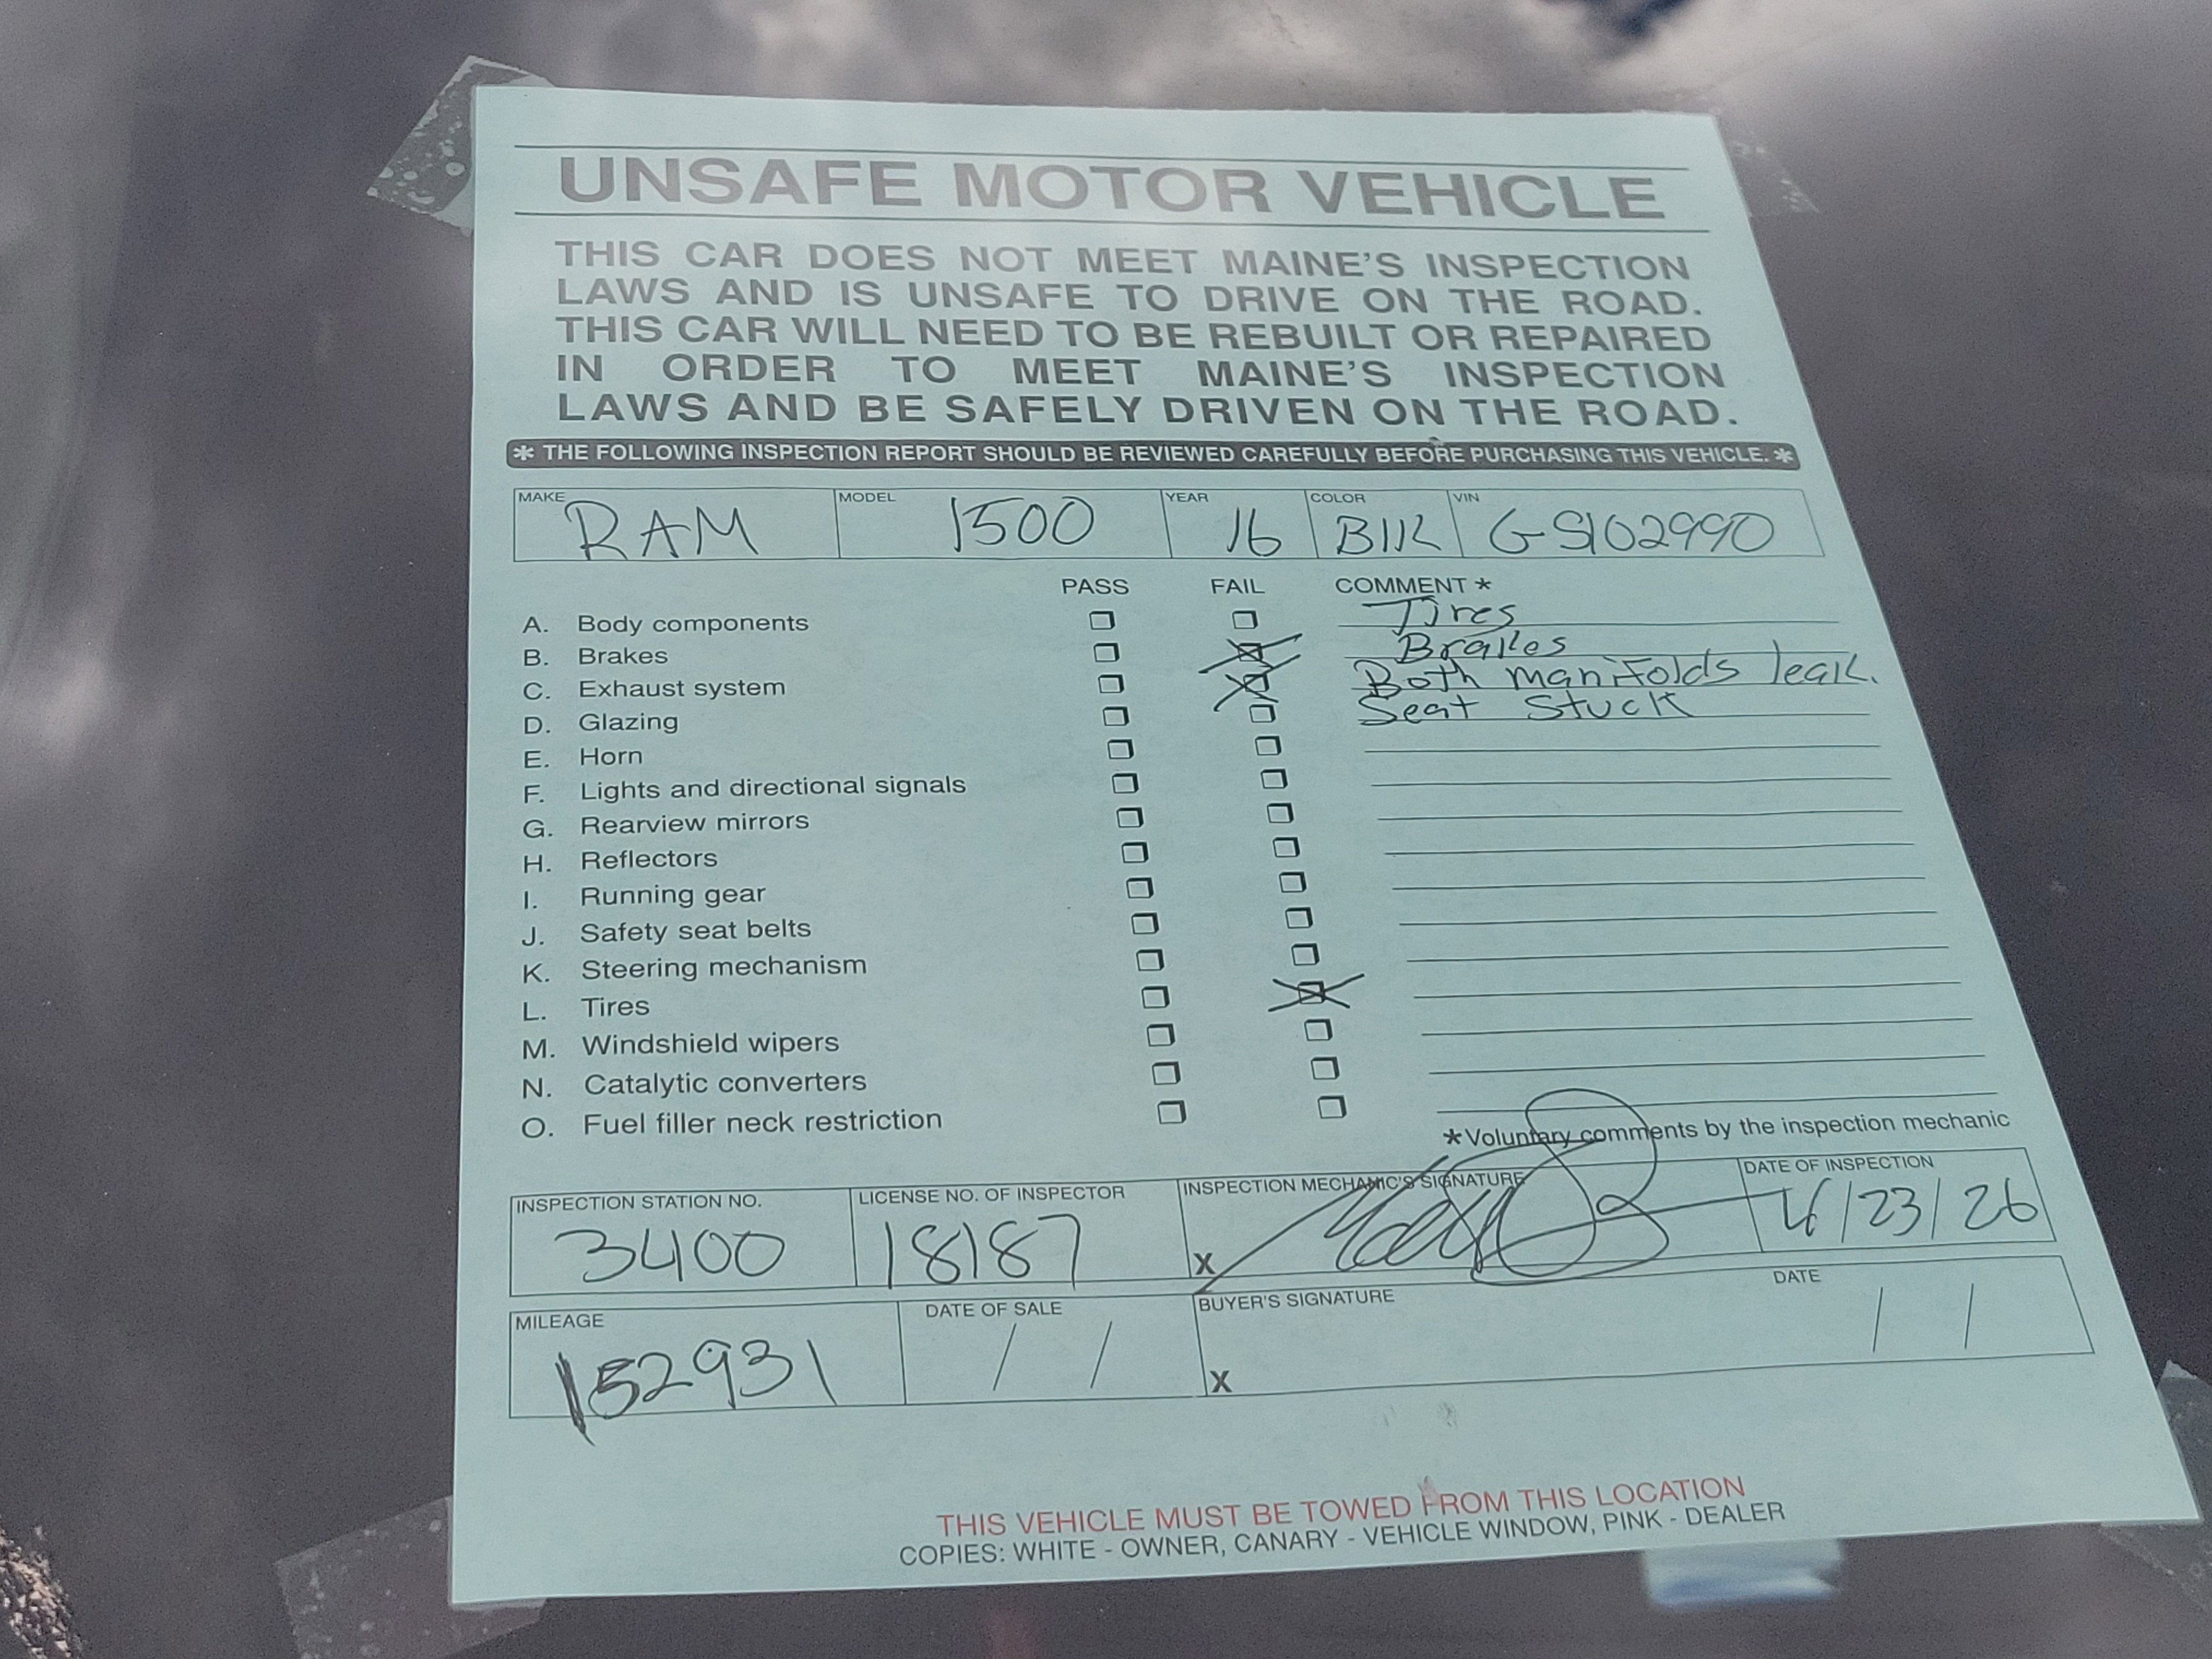 UNSAFE MOTOR VEHICLE
THIS CAR DOES NOT MEET MAINE'S INSPECTION
LAWS AND IS UNSAFE TO DRIVE ON THE ROAD.
THIS CAR WILL NEED TO BE REBUILT OR REPAIRED
IN ORDER TO MEET MAINE'S INSPECTION
LAWS AND BE SAFELY DRIVEN ON THE ROAD.
* THE FOLLOWING INSPECTION REPORT SHOULD BE REVIEWED CAREFULLY BEFORE PURCHASING THIS VEHICLE. *
MAKE MODEL YEAR COLOR VIN
RAM 1500 16 Blk GS102990
PASS FAIL COMMENT *
A. Body components Tires
B. Brakes Brakes
C. Exhaust system Both manifolds leak.
D. Glazing Seat Stuck
E. Horn
F. Lights and directional signals
G. Rearview mirrors
H. Reflectors
I. Running gear
J. Safety seat belts
K. Steering mechanism
L. Tires
M. Windshield wipers
N. Catalytic converters
O. Fuel filler neck restriction
*Voluntary comments by the inspection mechanic
INSPECTION STATION NO. LICENSE NO. OF INSPECTOR INSPECTION MECHANIC'S SIGNATURE DATE OF INSPECTION
3400 18187 X 4/23/26
MILEAGE DATE OF SALE BUYER'S SIGNATURE DATE
152931 / / X / /
THIS VEHICLE MUST BE TOWED FROM THIS LOCATION
COPIES: WHITE - OWNER, CANARY - VEHICLE WINDOW, PINK - DEALER